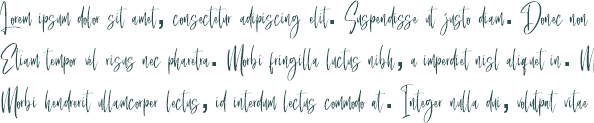 Lorem ipsum dolor sit amet, consectetur adipiscing elit. Suspendisse ut justo diam. Donec non
Etiam tempor vel risus nec pharetra. Morbi fringilla luctus nibh, a imperdiet nisl aliquet in.
Morbi hendrerit ullamcorper lectus, id interdum lectus commodo at. Integer nulla dui, volutpat vitae